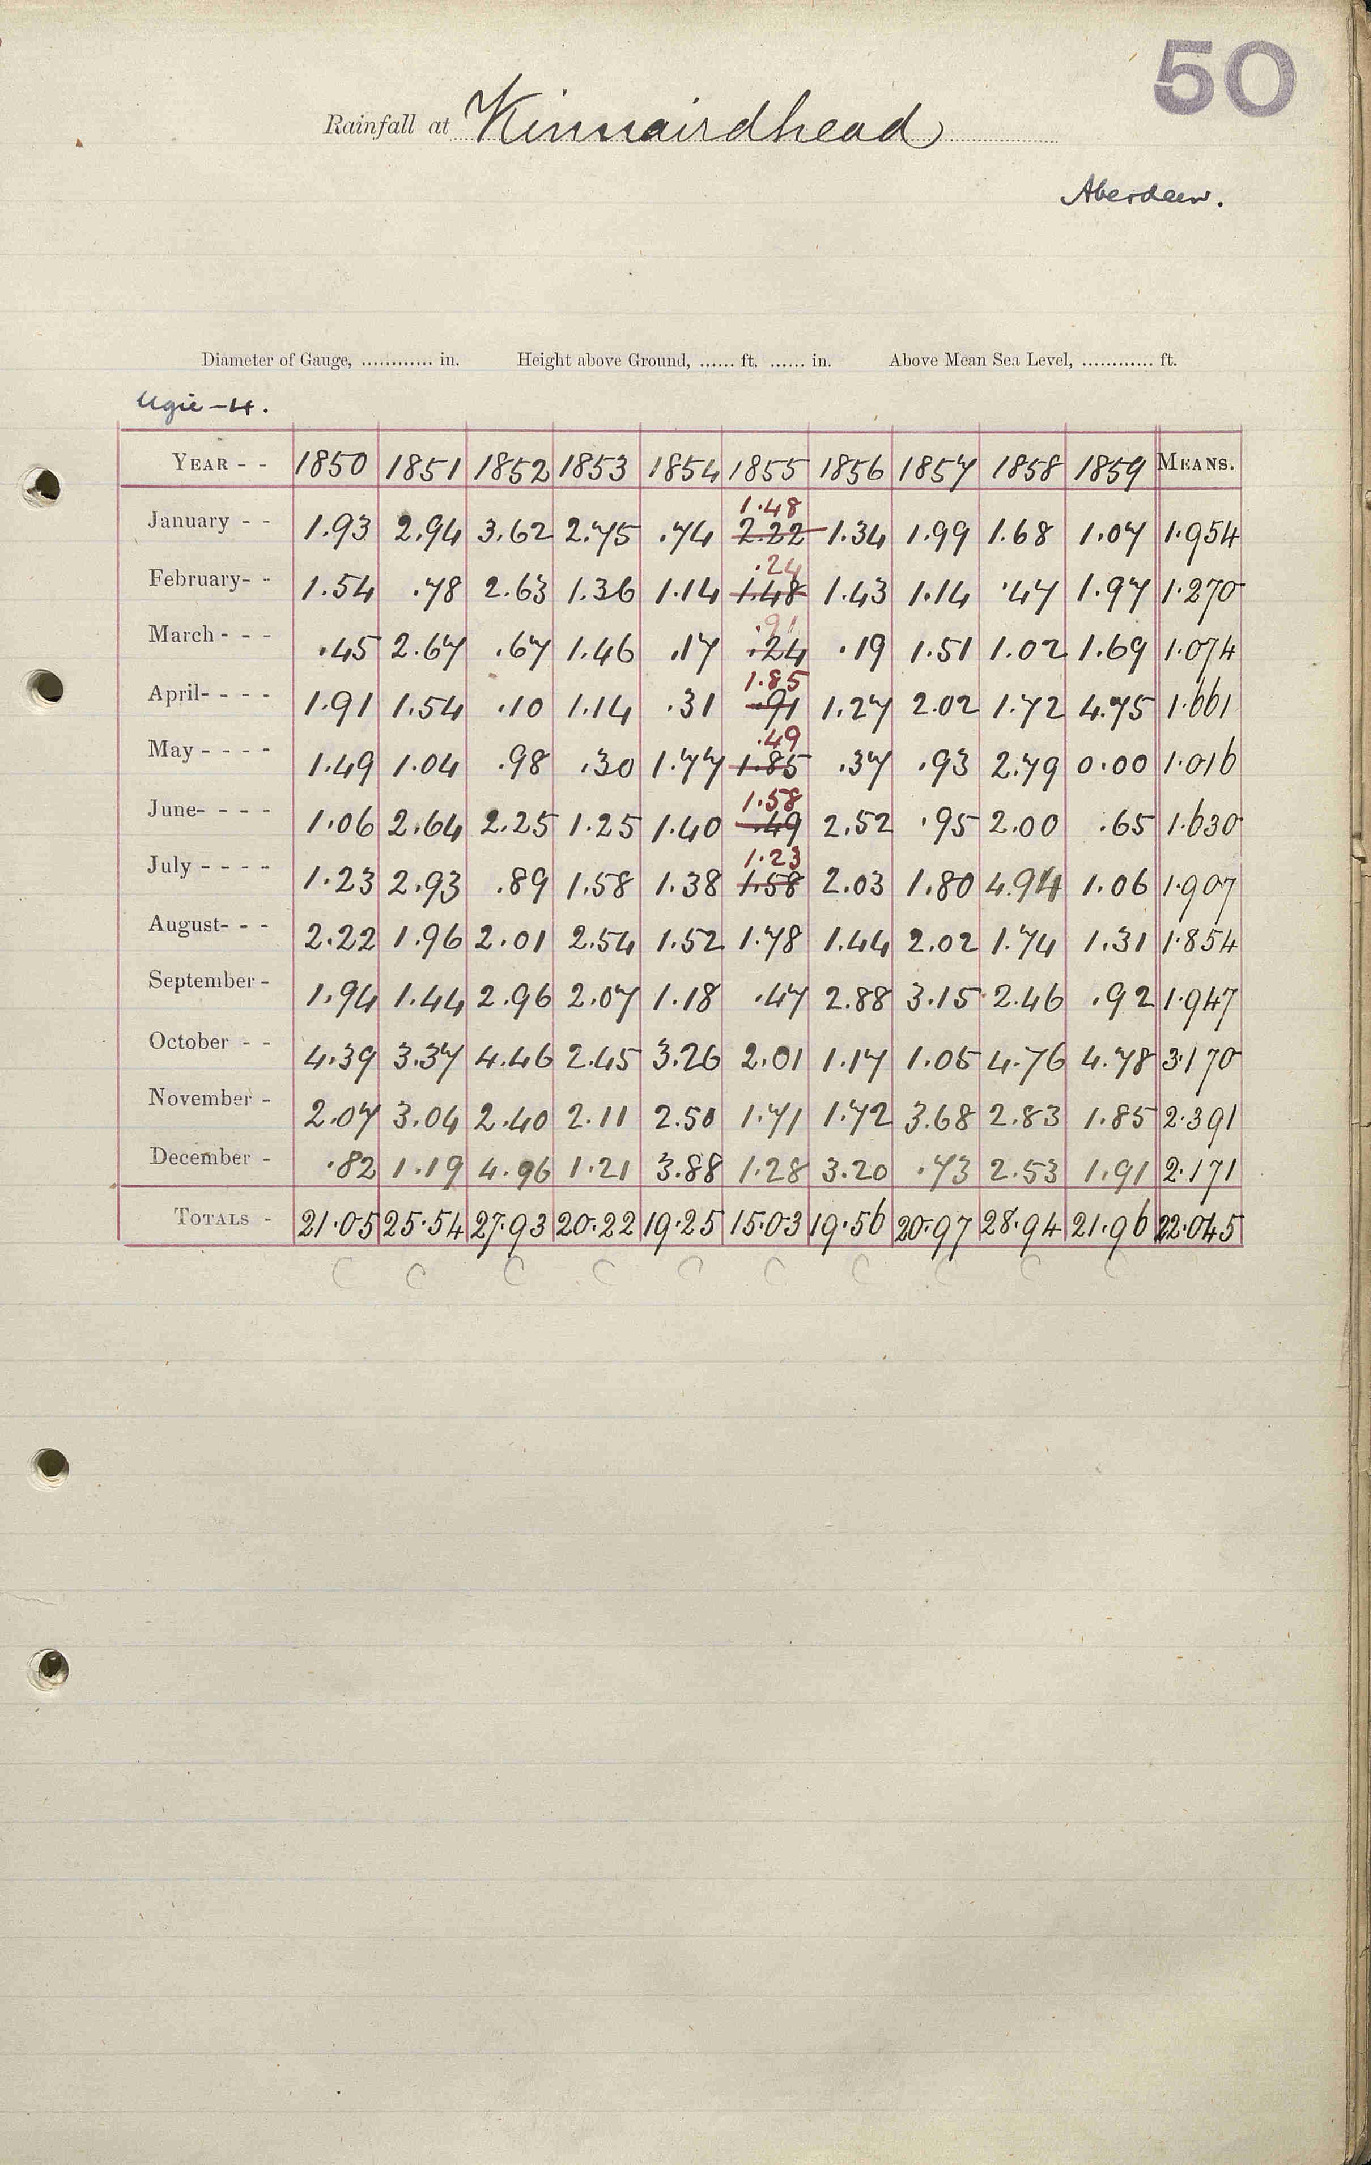 50
Rainfall at Kinnairdhead
Aberdeen.
Diameter of Gauge, ............ in. Height above Ground, ...... ft. ...... in. Above Mean Sea Level, ............ ft.
Ugie -4.
YEAR - - 1850 1851 1852 1853 1854 1855 1856 1857 1858 1859 MEANS.
1.48
January - - 1.93 2.94 3.62 2.75 .74 2.22 1.34 1.99 1.68 1.07 1.954
.24
February- - 1.54 .78 2.63 1.36 1.14 1.48 1.43 1.14 .47 1.97 1.270
.91
March - - - .45 2.67 .67 1.46 .17 .24 .19 1.51 1.02 1.69 1.074
1.85
April- - - - 1.91 1.54 .10 1.14 .31 .91 1.27 2.02 1.72 4.75 1.661
.49
May - - - - 1.49 1.04 .98 .30 1.77 1.85 .37 .93 2.79 0.00 1.016
1.58
June- - - - 1.06 2.64 2.25 1.25 1.40 .49 2.52 .95 2.00 .65 1.630
1.23
July - - - - 1.23 2.93 .89 1.58 1.38 1.58 2.03 1.80 4.94 1.06 1.907
August- - - 2.22 1.96 2.01 2.54 1.52 1.78 1.44 2.02 1.74 1.31 1.854
September - 1.94 1.44 2.96 2.07 1.18 .47 2.88 3.15 2.46 .92 1.947
October - - 4.39 3.37 4.46 2.45 3.26 2.01 1.17 1.05 4.76 4.78 3.170
November - 2.07 3.04 2.40 2.11 2.50 1.71 1.72 3.68 2.83 1.85 2.391
December - .82 1.19 4.96 1.21 3.88 1.28 3.20 .73 2.53 1.91 2.171
TOTALS - 21.05 25.54 27.93 20.22 19.25 15.03 19.56 20.97 28.94 21.96 22.045
C C C C C C C C C C